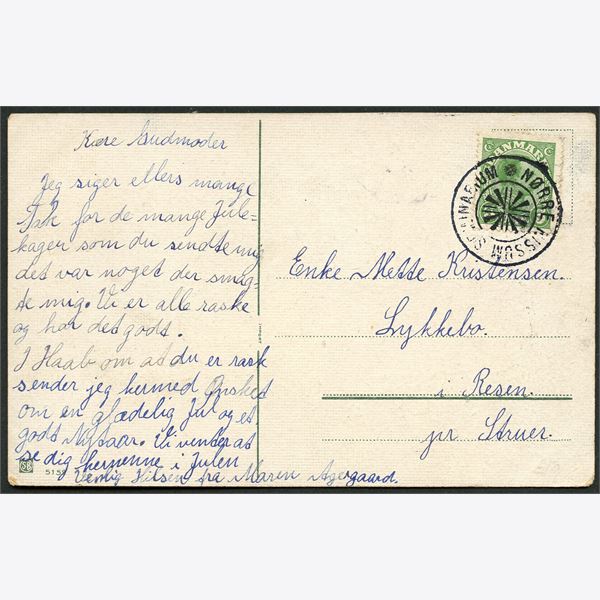 Kære Gudmoder
Jeg siger ellers mange
Tak for de mange Jule-
kager som du sendte mig
det var noget der smag-
te mig. Vi er alle raske
og har det godt.
I Haab om at du er rask
sender jeg hermed Ønsket
om en glædelig Jul og et
godt Nytaar. Vi venter at
se dig herhenne i Julen
Venlig Hilsen fra Maren Agergaard.
DANMARK
NØRRE NISSUM SEMINARIUM
Enke Mette Kristensen.
Lykkebo.
i Resen.
pr Struer.